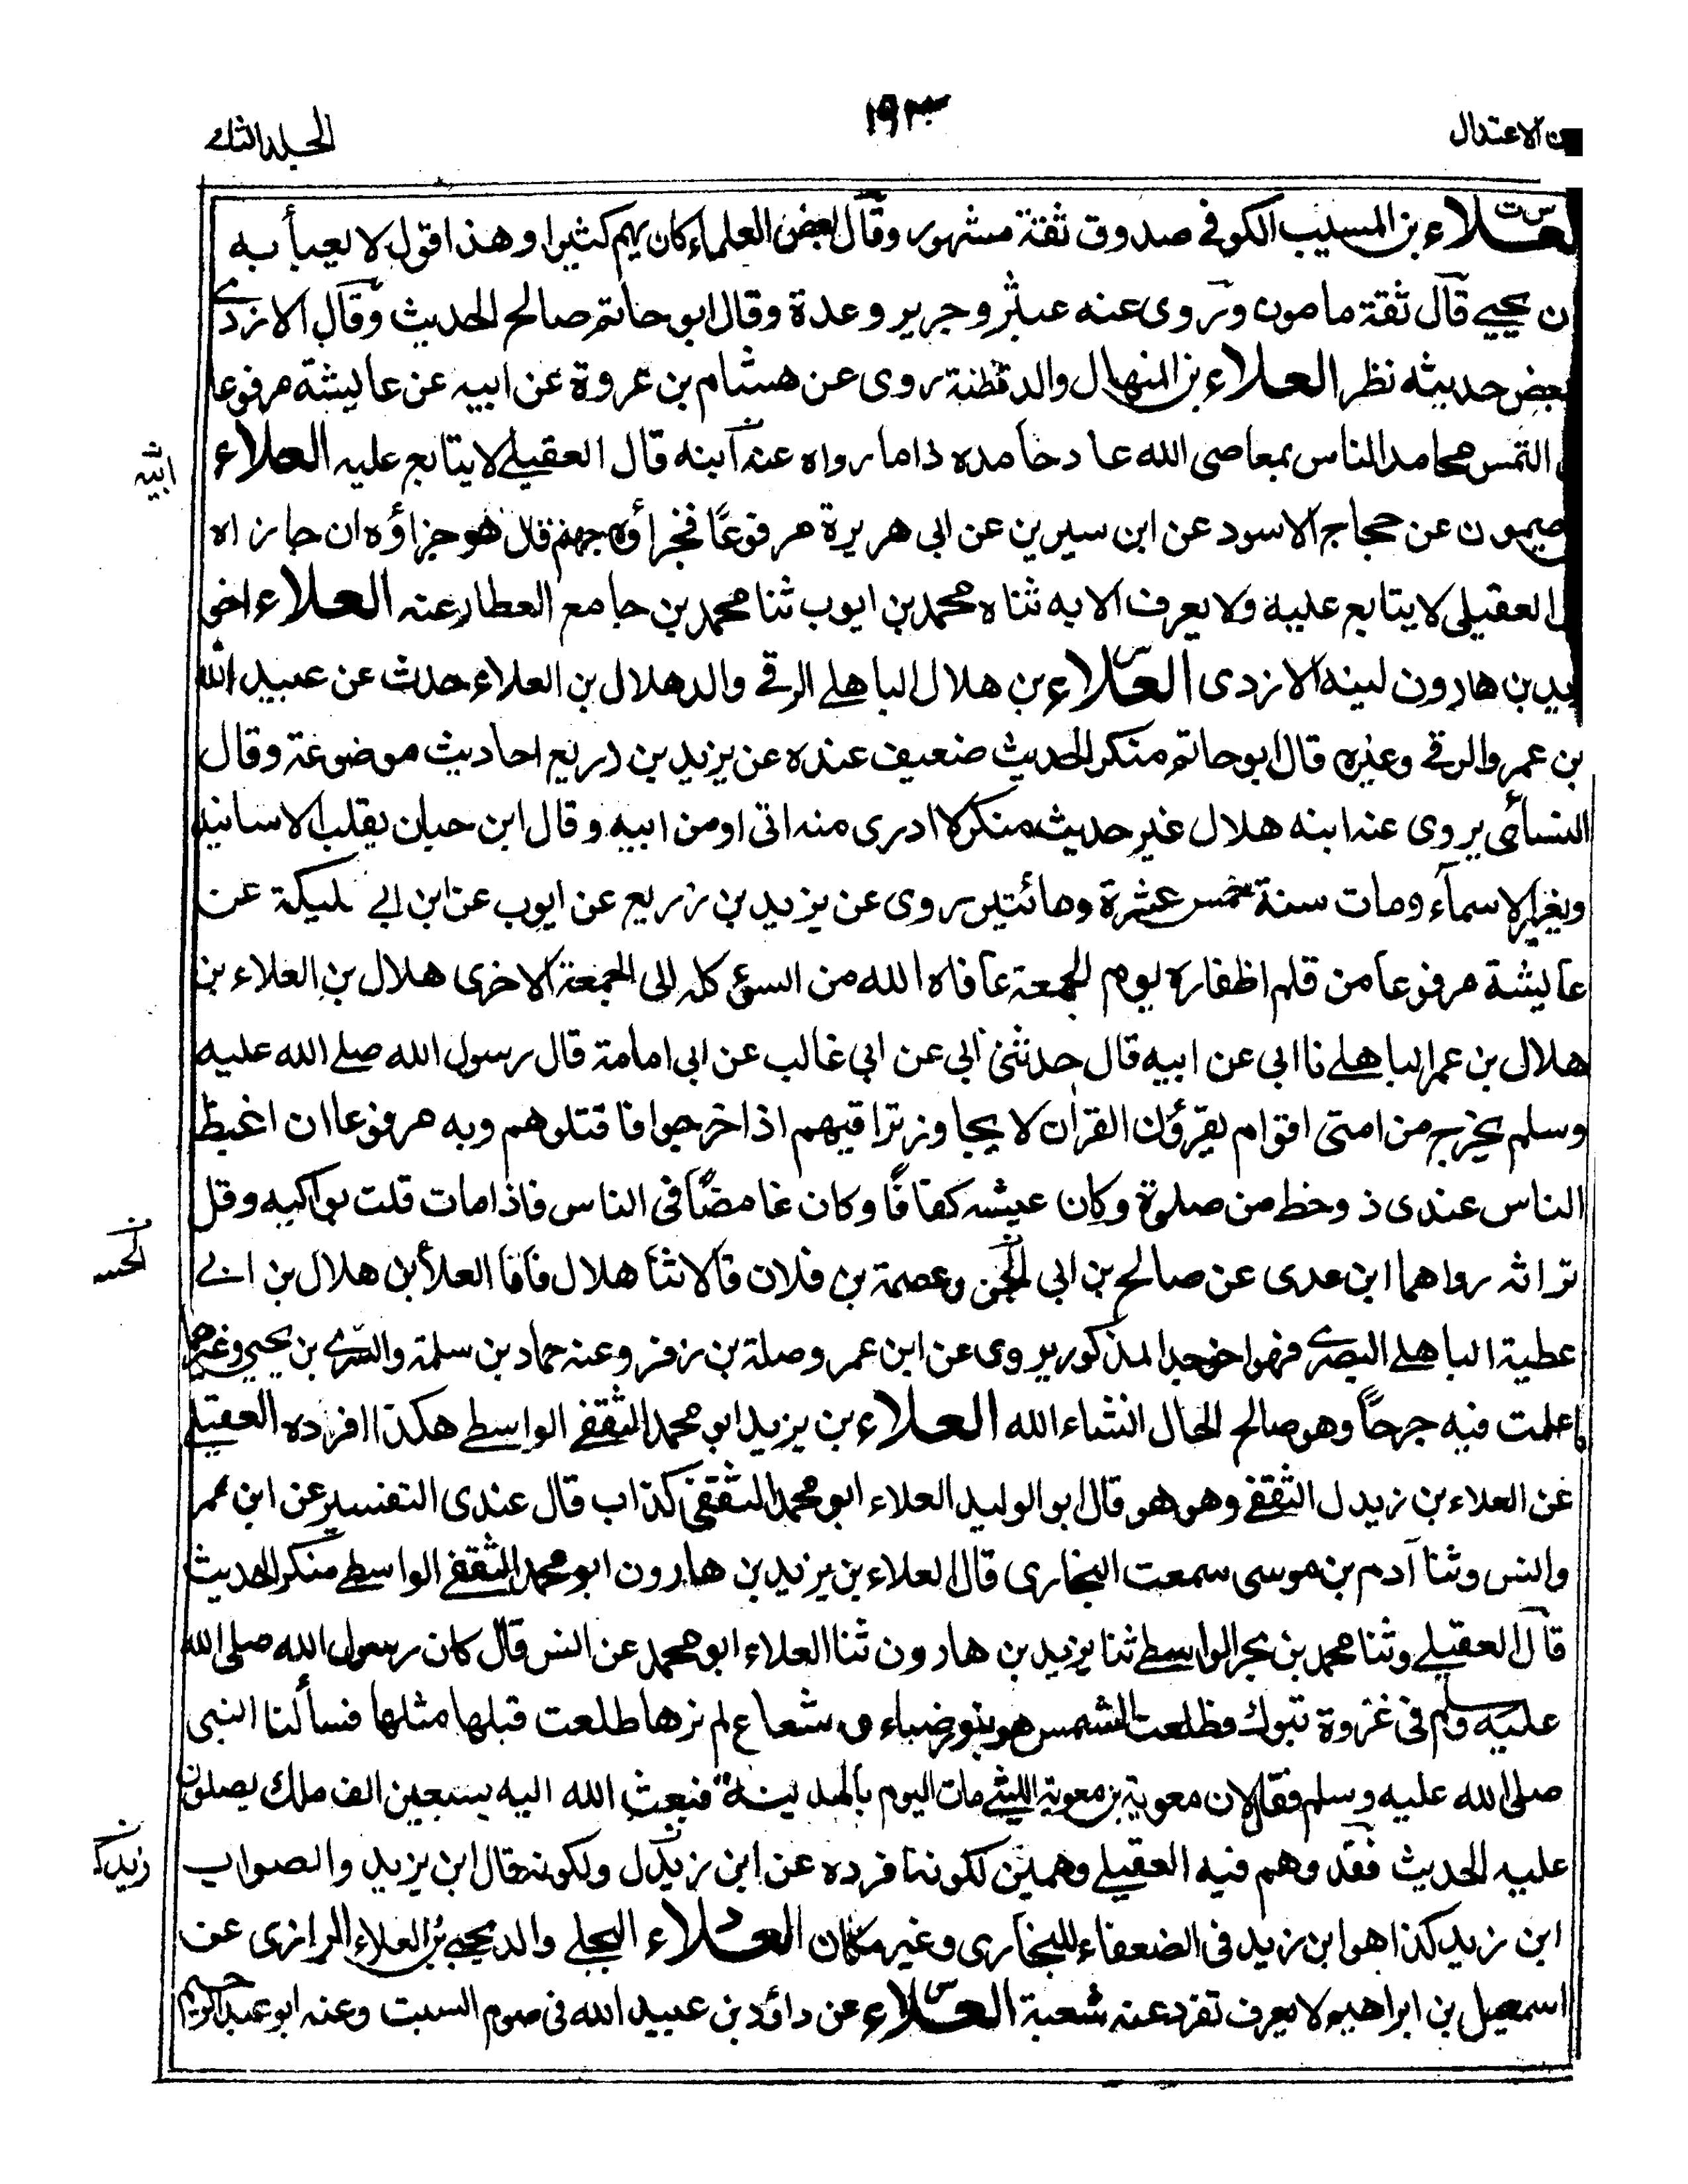 ن الاعتدال
١٩٣
الجلد الثانے
العلاء بن المسيب الكوفى صدوق ثقة مشهور وقال بعض العلماء كان يهم كثيرا وهذا قول لا يعبأ به
ن يحيے قال ثقة مامون وروى عنه عبثر وجرير وعدة وقال ابو حاتم صالح الحديث وقال الازدے
بعض حديثه نظر العلاء بن المنهال والد قطنة روى عن هشام بن عروة عن ابيه عن عايشة مرفوعا
التمس محامد الناس بمعاصى الله عاد حامده ذاما رواه عنه ابنه قال العقيلے لا يتابع عليه العلاء
ابيه
ميمون عن حجاج الاسود عن ابن سيرين عن ابى هريرة مرفوعًا فجزاؤه جهنم قال هو جزاؤه ان جازاه
ل العقيلى لا يتابع عليه ولا يعرف الا به ثناه محمد بن ايوب ثنا محمد بن جامع العطار عنه العلاء اخو
يد بن هارون لينه الازدى العلاء بن هلال الباهلے الرقے والد هلال بن العلاء حدث عن عبيد الله
بن عمرو الرقے وغيره قال ابو حاتم منكر الحديث ضعيف عنده عن يزيد بن زريع احاديث موضوعة وقال
النسائى يروى عنه ابنه هلال غير حديث منكر لا ادرى منه اتى او من ابيه وقال ابن حبان يقلب الاسانيد
ويغير الاسمآء ومات سنة خمس عشرة ومائتين روى عن يزيد بن زريع عن ايوب عن ابن ابے مليكة عن
عايشة مرفوعا من قلم اظفاره يوم الجمعة عافاه الله من السوء كله الى الجمعة الاخرى هلال بن العلاء بن
هلال بن عمر الباهلے نا ابى عن ابيه قال حدثنى ابى عن ابى غالب عن ابى امامة قال رسول الله صلے الله عليه
وسلم يخرج من امتى اقوام يقرؤن القران لا يجاوز تراقيهم اذا خرجوا فاقتلوهم وبه مرفوعا ان اغبط
الناس عندى ذو حظ من صلوة وكان عيشه كفافًا وكان غامضًا فى الناس فاذا مات قلت بواكيه وقل
تراثه رواهما ابن عدى عن صالح بن ابى الجن وعصمة بن فلان قالا ثنا هلال فاما العلأ بن هلال بن ابے
عطية الباهلے البصرے فهو اخو جد المذكور يروى عن ابن عمر وصلة بن زفر وعنه حماد بن سلمة والسرے بن يحيے وغيرهما
ما علمت فيه جرحًا وهو صالح الحال انشاء الله العلاء بن يزيد ابو محمد الثقفے الواسطے هكذا افرده العقيلے
عن العلاء بن زيدل الثقفے وهو هو قال ابو الوليد العلاء ابو محمد الثقفى كذاب قال عندى التفسير عن ابن عمر
وانس وثنا آدم بن موسى سمعت البخارى قال العلاء بن يزيد بن هارون ابو محمد الثقفے الواسطے منكر الحديث
قال العقيلے وثنا محمد بن بحر الواسطے ثنا يزيد بن هارون ثنا العلاء ابو محمد عن انس قال كان رسول الله صلى الله
عليه وسلم فى غزوة تبوك فطلعت الشمس بنور وضياء و شعاع لم نرها طلعت قبلها مثلها فسألنا النبى
صلى الله عليه وسلم فقال ان معوية بن معوية الليثے مات اليوم بالمدينة فبعث الله اليه بسبعين الف ملك يصلون
عليه الحديث فقد وهم فيه العقيلے وهمين لكونه افرده عن ابن زيدل ولكونه قال ابن يزيد والصواب
زيدك
ابن زيد كذا هو ابن زيد فى الضعفاء للبخارى وغير مكان العلاء البجلے والد يحيے بن العلاء الرازى عن
اسمعيل بن ابراهيم لا يعرف تفرد عنه شعبة العلاء عن داؤد بن عبيد الله فى صوم السبت وعنه ابو عبد الرحيم